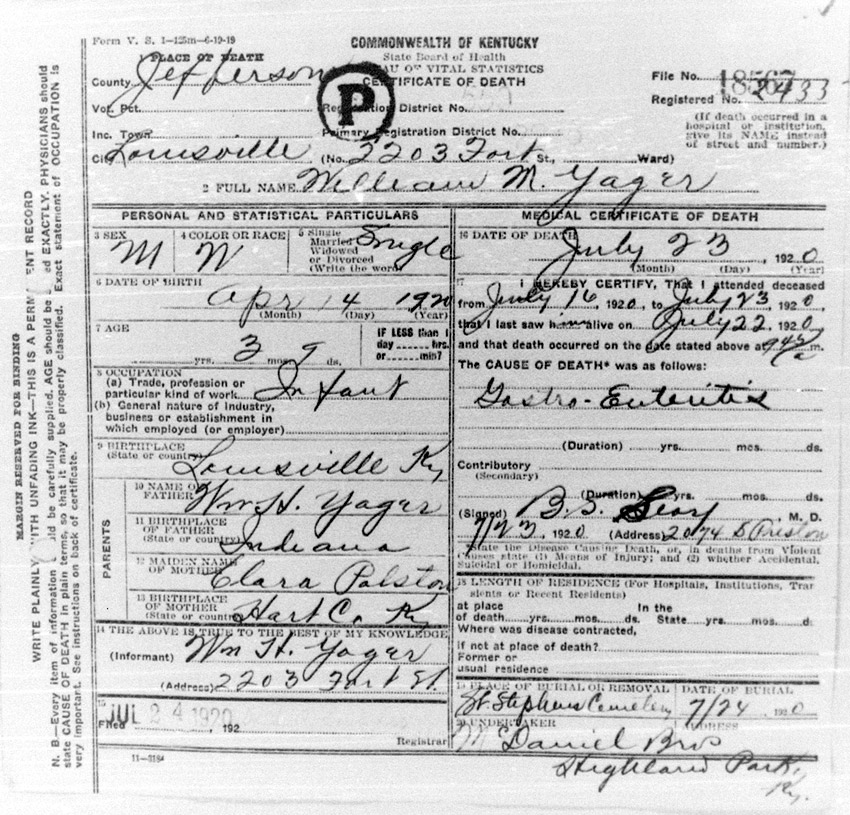 Form V. S. 1—125m—6-19-19
COMMONWEALTH OF KENTUCKY
State Board of Health
BUREAU OF VITAL STATISTICS
CERTIFICATE OF DEATH
PLACE OF DEATH
County Jefferson
P
File No. 18567
Registered No. 2433
Vot. Pct.
Registration District No.
(If death occurred in a hospital or institution, give its NAME instead of street and number.)
Inc. Town
Primary Registration District No.
City Louisville (No. 2203 Fort St., Ward)
2 FULL NAME William M. Yager
PERSONAL AND STATISTICAL PARTICULARS
3 SEX M
4 COLOR OR RACE W
5 Single Married Widowed or Divorced (Write the word) Single
6 DATE OF BIRTH
Apr 14 1920
(Month) (Day) (Year)
7 AGE
yrs. 3 mos. 9 ds.
IF LESS than 1 day hrs. or min?
8 OCCUPATION
(a) Trade, profession or particular kind of work Infant
(b) General nature of industry, business or establishment in which employed (or employer)
9 BIRTHPLACE
(State or country) Louisville Ky
PARENTS
10 NAME OF FATHER Wm H. Yager
11 BIRTHPLACE OF FATHER (State or country) Indiana
12 MAIDEN NAME OF MOTHER Clara Polston
13 BIRTHPLACE OF MOTHER (State or country) Hart Co. Ky
14 THE ABOVE IS TRUE TO THE BEST OF MY KNOWLEDGE
(Informant) Wm H. Yager
(Address) 2203 Fort St.
15
Filed JUL 24 1920, 192
Registrar
11—3184
MEDICAL CERTIFICATE OF DEATH
16 DATE OF DEATH July 23, 1920
(Month) (Day) (Year)
17 I HEREBY CERTIFY, That I attended deceased
from July 16, 1920, to July 23, 1920,
that I last saw him alive on July 22, 1920,
and that death occurred on the date stated above at m.
The CAUSE OF DEATH* was as follows:
Gastro-Enteritis
(Duration) yrs. mos. ds.
Contributory
(Secondary)
(Duration) yrs. mos. ds.
(Signed) B. M. D.
7/23, 1920 (Address) 2074 S Preston
*State the Disease Causing Death, or, in deaths from Violent
Causes state (1) Means of Injury; and (2) whether Accidental,
Suicidal or Homicidal.
18 LENGTH OF RESIDENCE (For Hospitals, Institutions, Transients or Recent Residents)
at place of death yrs. mos. ds. In the State yrs. mos. d
Where was disease contracted,
if not at place of death?
Former or
usual residence
19 PLACE OF BURIAL OR REMOVAL St Stephens Cemetery
DATE OF BURIAL 7/24 1920
20 UNDERTAKER McDaniel Bros
ADDRESS
Highland Park, Ky.
MARGIN RESERVED FOR BINDING
WRITE PLAINLY, WITH UNFADING INK—THIS IS A PERMANENT RECORD
N. B.—Every item of information should be carefully supplied. AGE should be stated EXACTLY. PHYSICIANS should
state CAUSE OF DEATH in plain terms, so that it may be properly classified. Exact statement of OCCUPATION is
very important. See instructions on back of certificate.